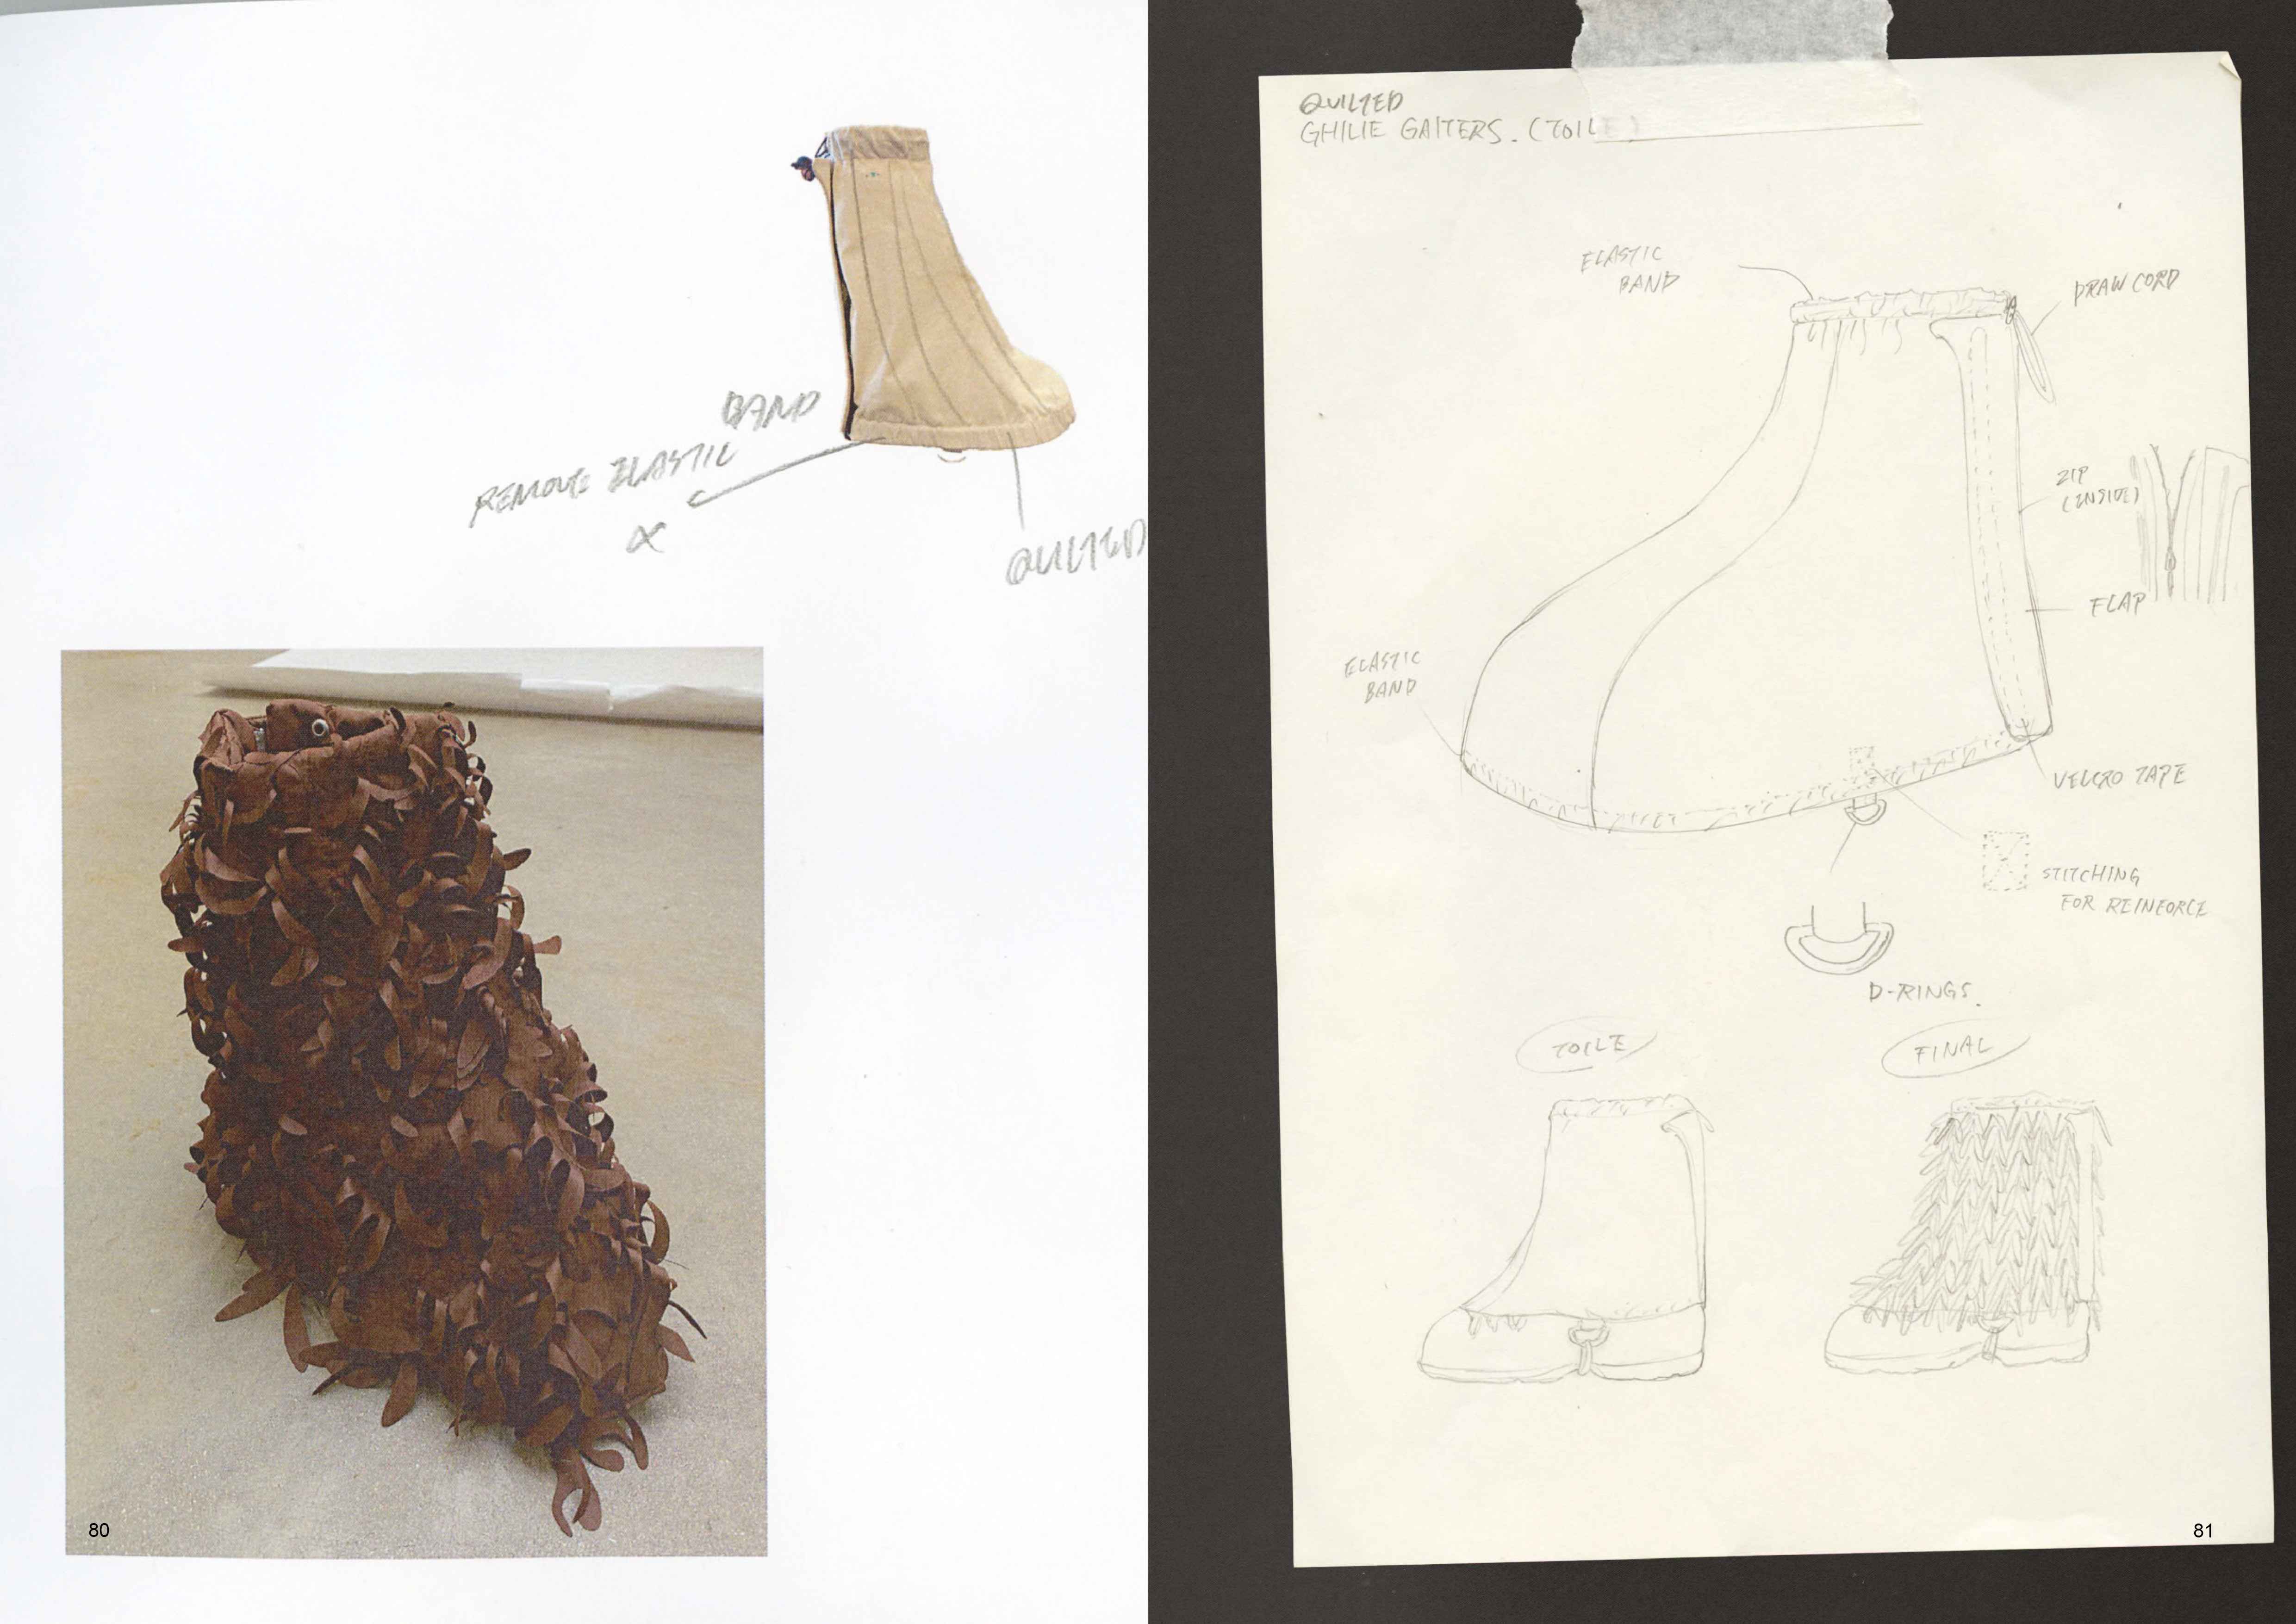 BAND
REMOVE ELASTIC
QUILTED
80
QUILTED
GHILIE GAITERS. (TOILE)
ELASTIC
BAND
DRAW CORD
ZIP
(INSIDE)
FLAP
ELASTIC
BAND
VELCRO TAPE
STITCHING
FOR REINFORCE
D-RINGS.
TOILE
FINAL
81